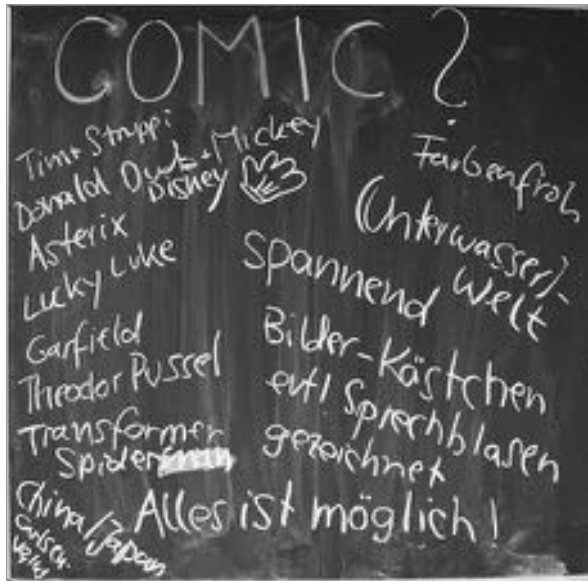 COMIC?
Tim+Struppi
Donald Duck+Mickey
DISNEY
Asterix
Lucky Luke
Garfield
Theodor Pussel
Transformer
Spiderman
China/Japan
Farbenfroh
(Unterwasser)-
Welt
Spannend
Bilder-Kästchen
evtl Sprechblasen
gezeichnet
Alles ist möglich!